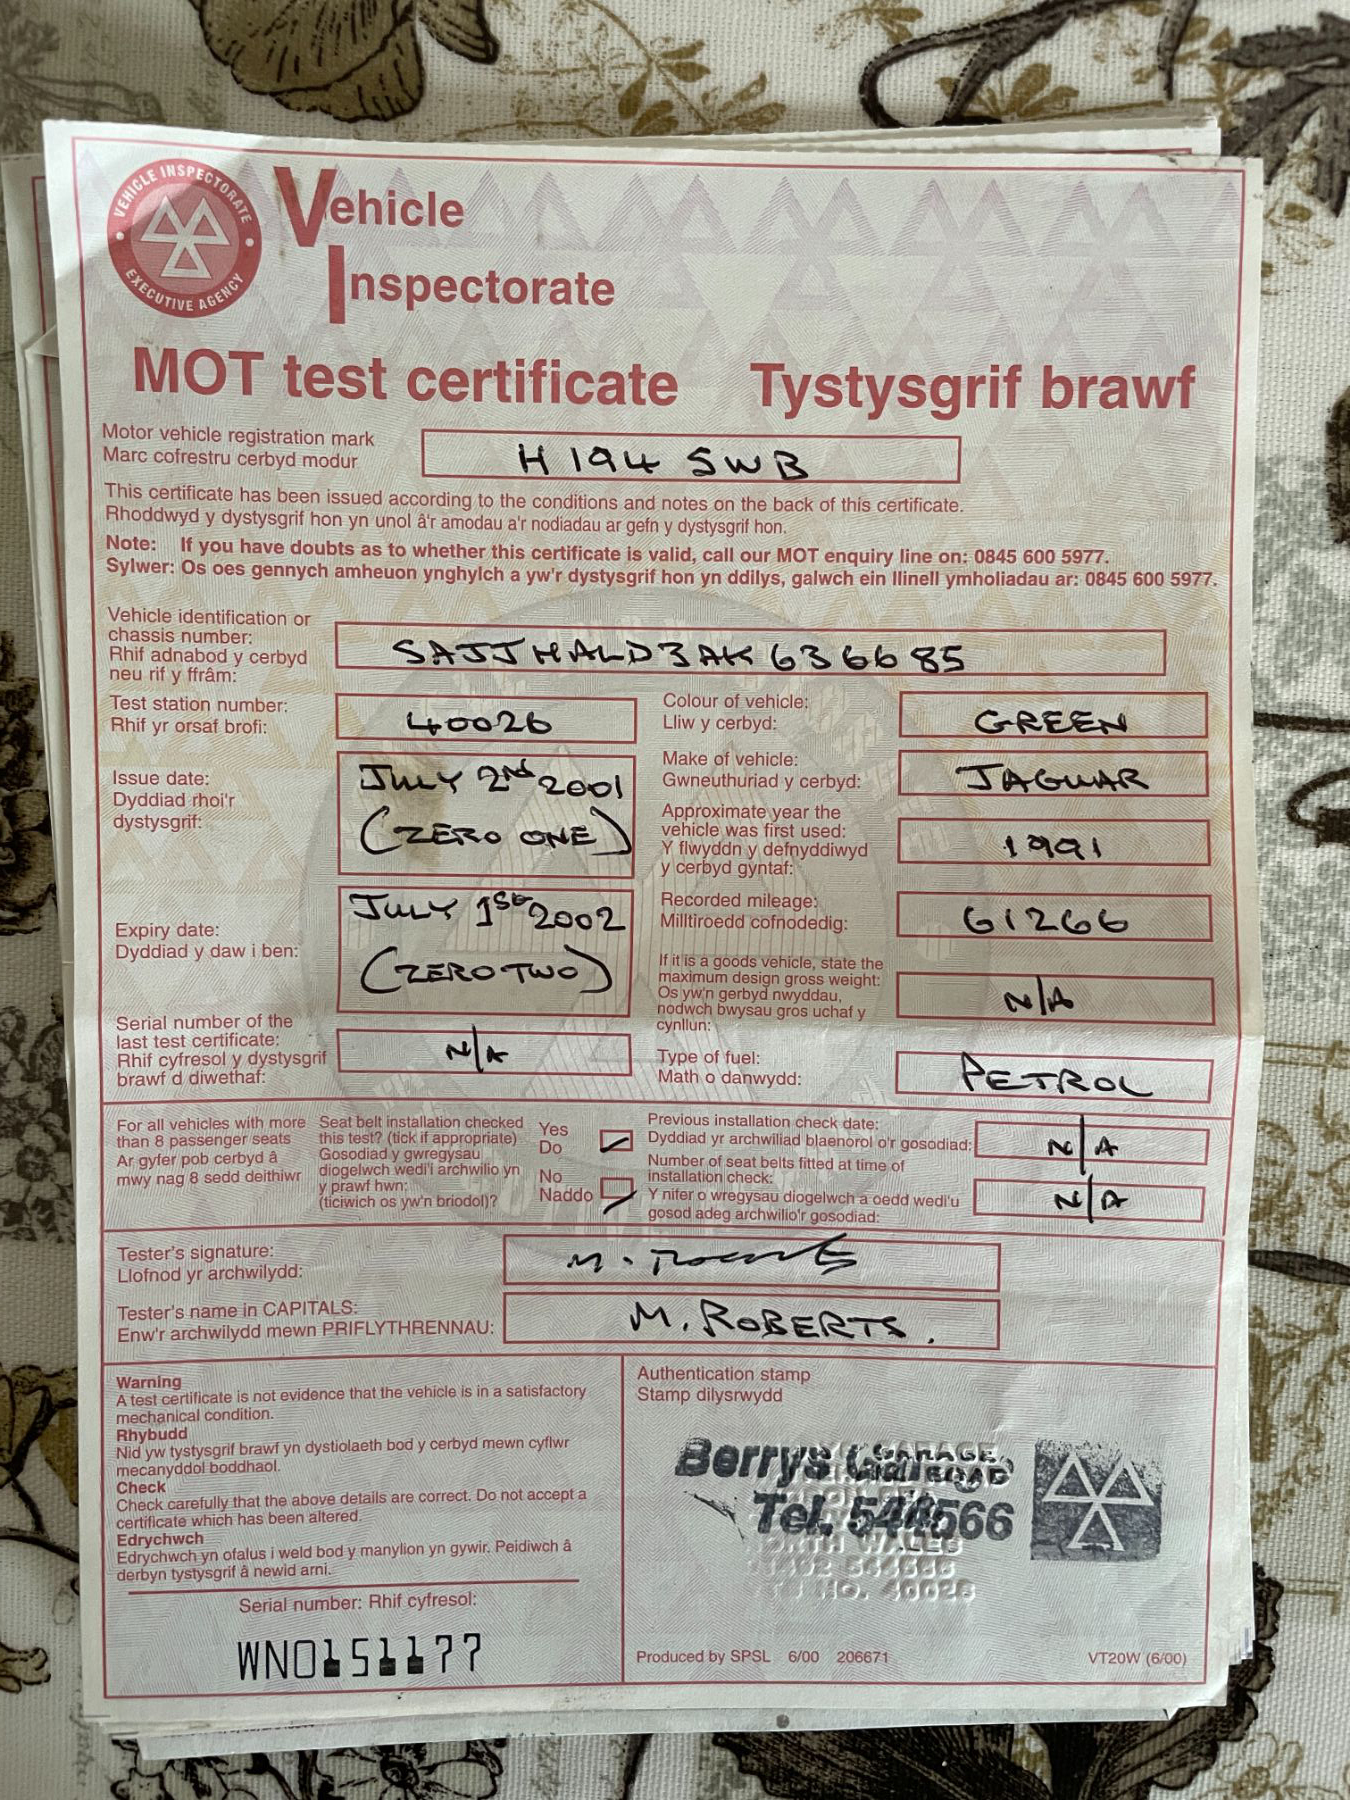 VEHICLE INSPECTORATE
EXECUTIVE AGENCY
Vehicle
Inspectorate
MOT test certificate Tystysgrif brawf
Motor vehicle registration mark
Marc cofrestru cerbyd modur
H194 SWB
This certificate has been issued according to the conditions and notes on the back of this certificate.
Rhoddwyd y dystysgrif hon yn unol â'r amodau a'r nodiadau ar gefn y dystysgrif hon.
Note: If you have doubts as to whether this certificate is valid, call our MOT enquiry line on: 0845 600 5977.
Sylwer: Os oes gennych amheuon ynghylch a yw'r dystysgrif hon yn ddilys, galwch ein llinell ymholiadau ar: 0845 600 5977.
Vehicle identification or
chassis number:
Rhif adnabod y cerbyd
neu rif y ffrâm:
SAJJHALD3AK636685
Test station number:
Rhif yr orsaf brofi:
40026
Colour of vehicle:
Lliw y cerbyd:
GREEN
Issue date:
Dyddiad rhoi'r
dystysgrif:
JULY 2nd 2001
(ZERO ONE)
Make of vehicle:
Gwneuthuriad y cerbyd:
JAGUAR
Approximate year the
vehicle was first used:
Y flwyddn y defnyddiwyd
y cerbyd gyntaf:
1991
Expiry date:
Dyddiad y daw i ben:
JULY 1st 2002
(ZERO TWO)
Recorded mileage:
Milltiroedd cofnodedig:
61266
If it is a goods vehicle, state the
maximum design gross weight:
Os yw'n gerbyd nwyddau,
nodwch bwysau gros uchaf y
cynllun:
N/A
Serial number of the
last test certificate:
Rhif cyfresol y dystysgrif
brawf d diwethaf:
N/A
Type of fuel:
Math o danwydd:
PETROL
For all vehicles with more
than 8 passenger seats
Ar gyfer pob cerbyd â
mwy nag 8 sedd deithiwr
Seat belt installation checked
this test? (tick if appropriate)
Gosodiad y gwregysau
diogelwch wedi'i archwilio yn
y prawf hwn:
(ticiwich os yw'n briodol)?
Yes
Do
No
Naddo
Previous installation check date:
Dyddiad yr archwiliad blaenorol o'r gosodiad:
N/A
Number of seat belts fitted at time of
installation check:
Y nifer o wregysau diogelwch a oedd wedi'u
gosod adeg archwilio'r gosodiad:
N/A
Tester's signature:
Llofnod yr archwilydd:
M. Roberts
Tester's name in CAPITALS:
Enw'r archwilydd mewn PRIFLYTHRENNAU:
M. ROBERTS.
Warning
A test certificate is not evidence that the vehicle is in a satisfactory
mechanical condition.
Rhybudd
Nid yw tystysgrif brawf yn dystiolaeth bod y cerbyd mewn cyflwr
mecanyddol boddhaol.
Check
Check carefully that the above details are correct. Do not accept a
certificate which has been altered.
Edrychwch
Edrychwch yn ofalus i weld bod y manylion yn gywir. Peidiwch â
derbyn tystysgrif â newid arni.
Serial number: Rhif cyfresol:
WN0151177
Authentication stamp
Stamp dilysrwydd
Berrys
GARAGE,
Tel.
NORTH WALES
TS NO. 40026
Produced by SPSL 6/00 206671
VT20W (6/00)